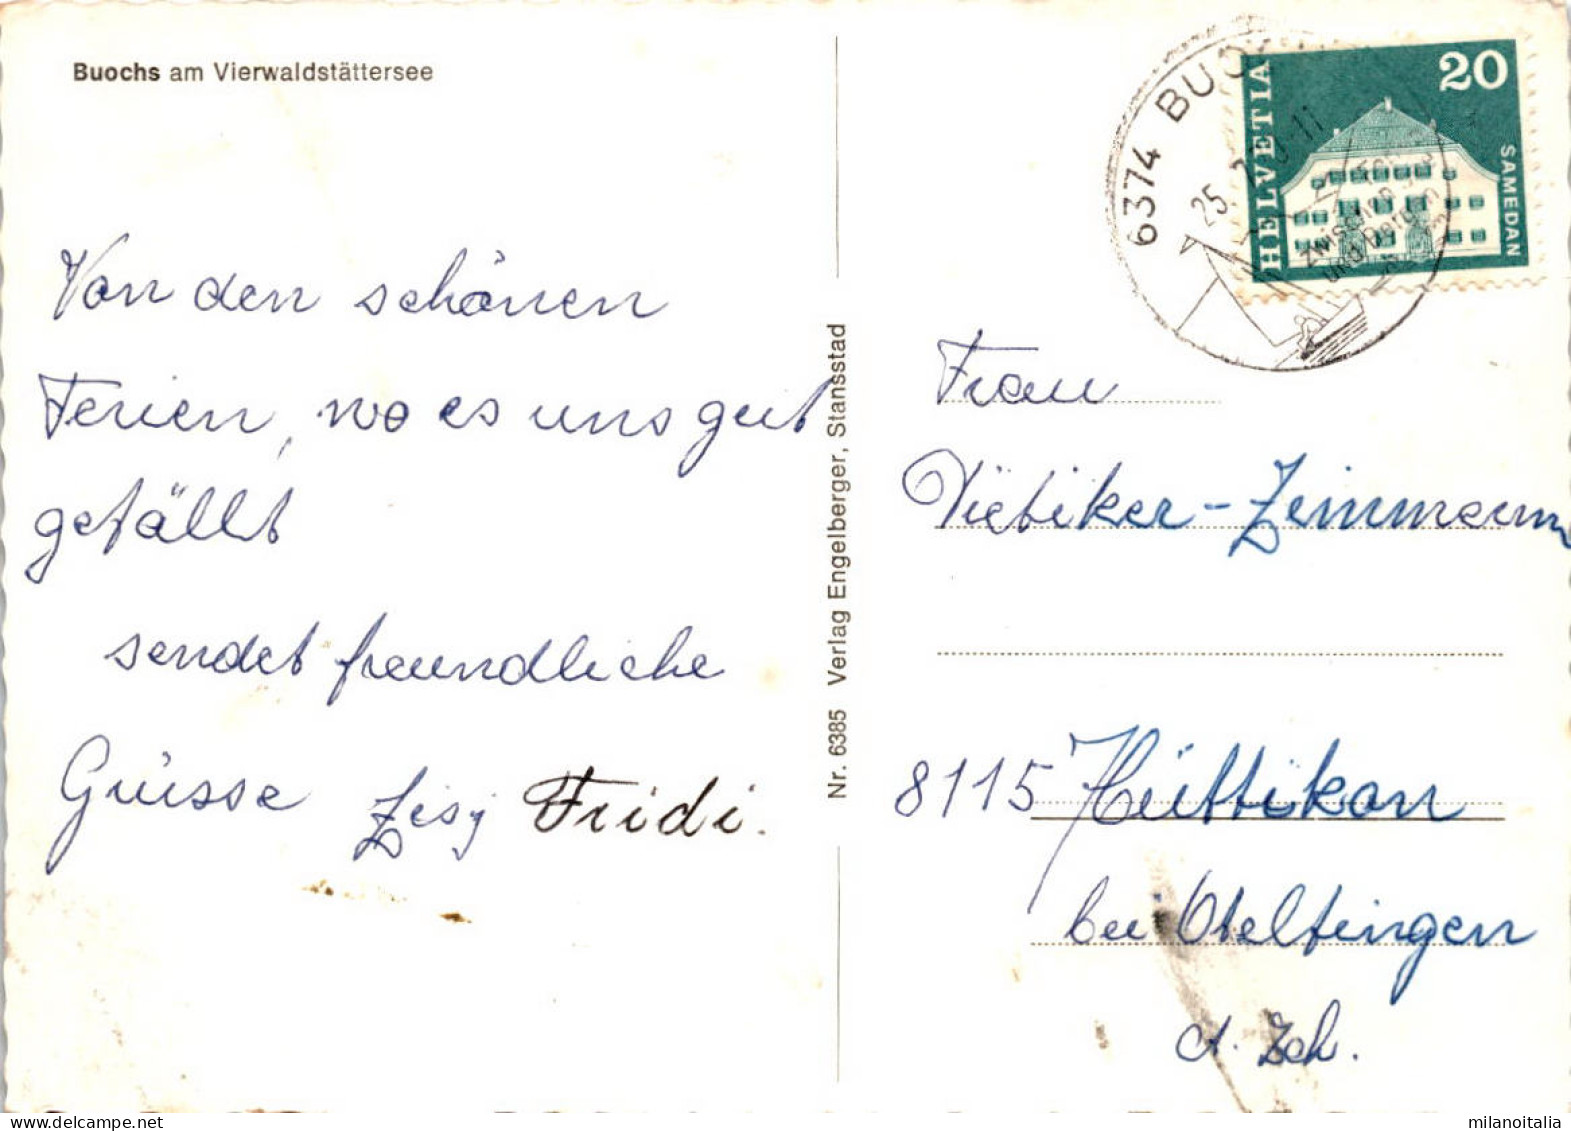 Buochs am Vierwaldstättersee
Von den schönen
Ferien, wo es uns gut
gefällt
sendet freundliche
Grüsse Zisy Fridi.
Nr. 6385 Verlag Engelberger, Stansstad
6374 BUO
25. 11
zwischen See
und Bergen
HELVETIA
20
SAMEDAN
Frau
Vietiker-Zimmermann
8115 Hüttikon
bei Otelfingen
Kt. Zch.
milanoitalia